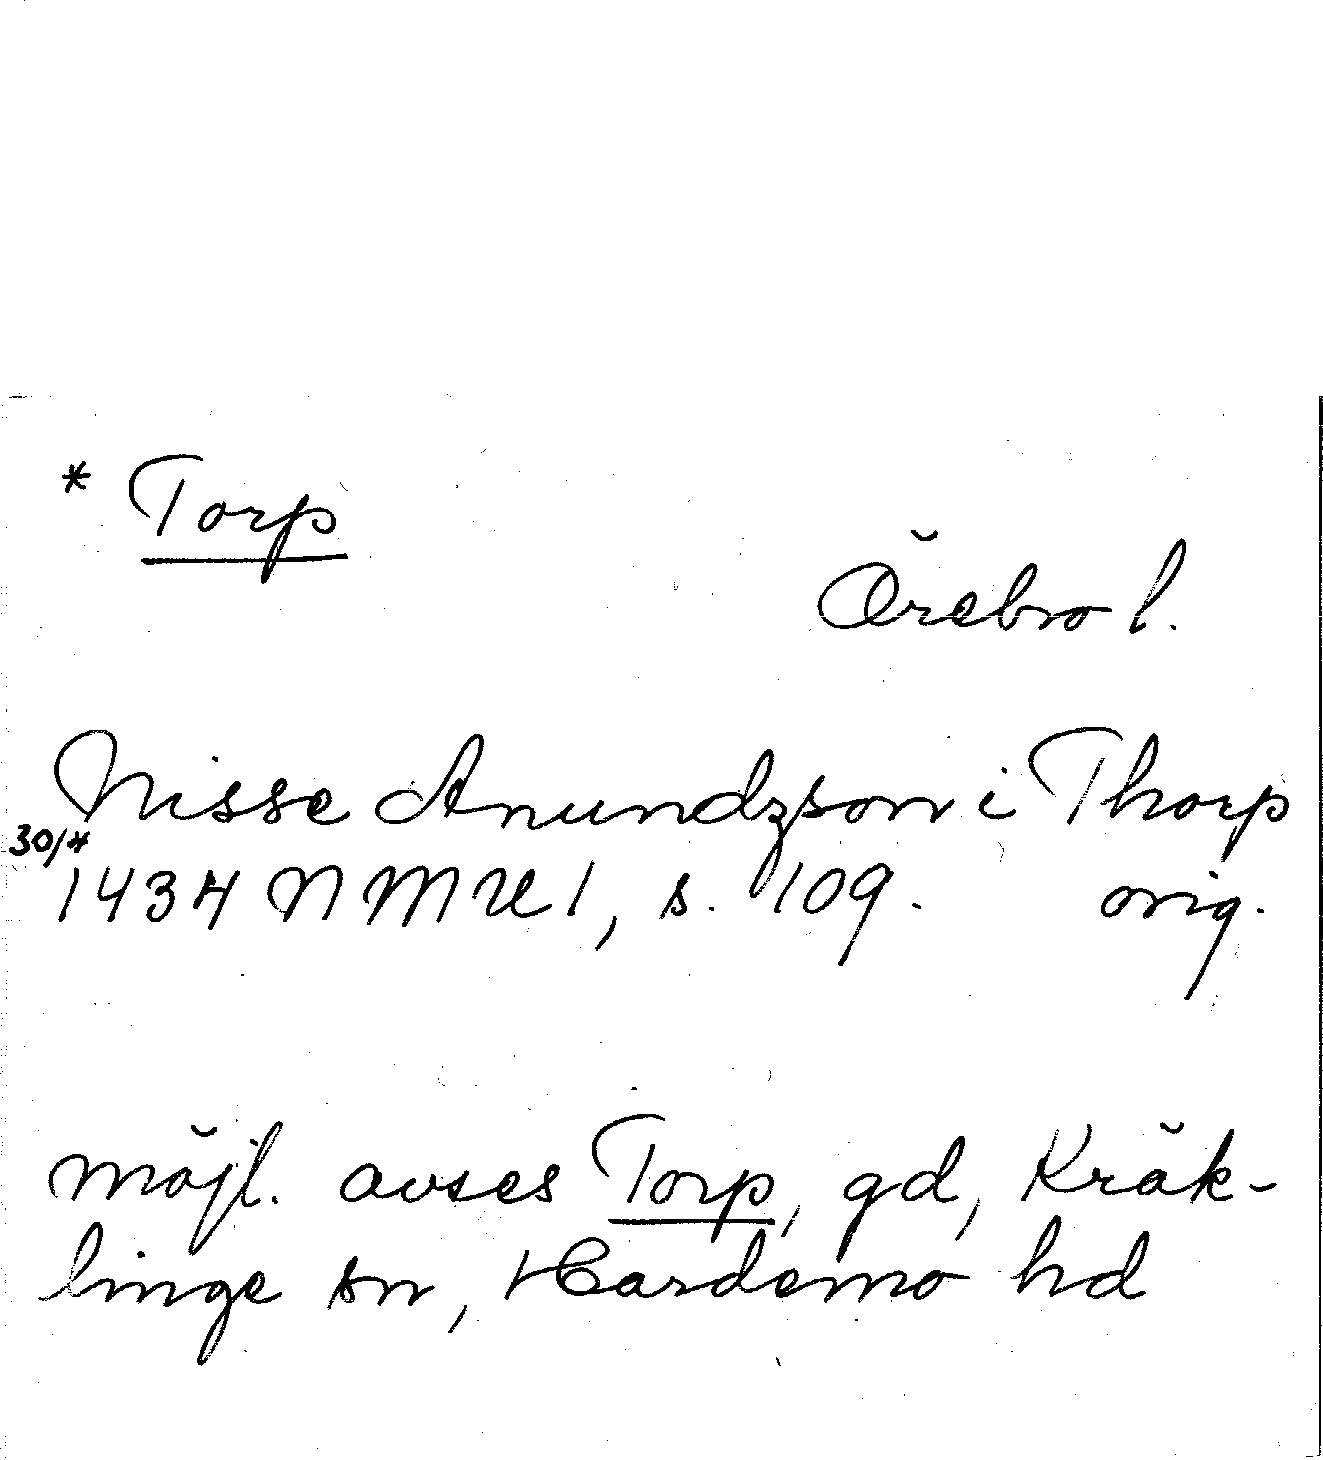 * Torp
Örebro l.
Nisse Anundzson i Thorp
30/4
1434 NMU 1, s. 109. orig.
möjl. avses Torp, gd, Kräk-
linge sn, Hardemo hd